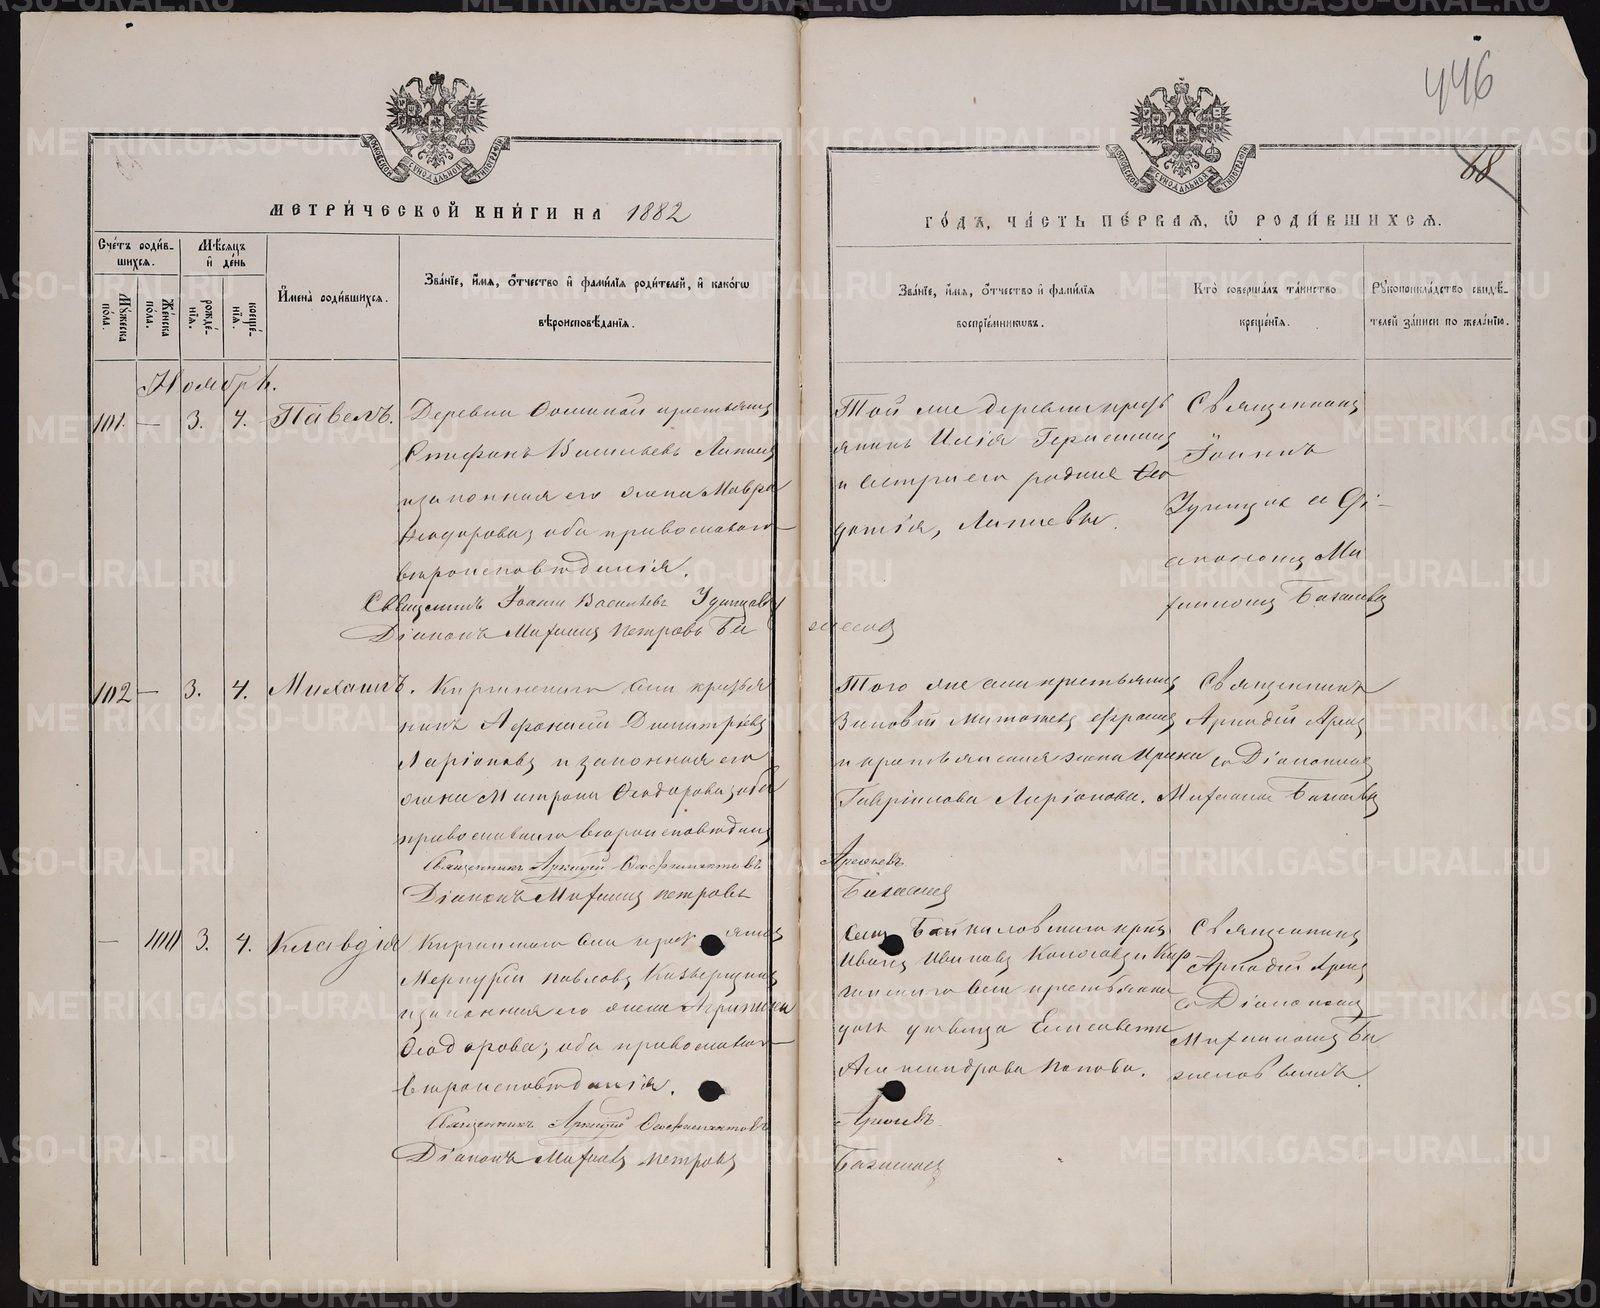 446
68
МЕТРИ́ЧЕСКОЙ КНИ́ГИ НА 1882
ГО́ДЪ, ЧА́СТЬ ПЕ́РВАЯ, Ѿ РОДИ́ВШИХСЯ.
Сче́тъ роди́вшихся.
Мѣ́сяцъ и҆ де́нь
Му́жеска по́ла.
Же́нска по́ла.
рожде́нїя.
креще́нїя.
И҆мена̀ роди́вшихся.
Зва́нїе, и҆́мя, о҆́тчество и҆ фами́лїя роди́телей, и҆ како́гѡ
вѣроисповѣ́данїя.
Зва́нїе, и҆́мя, о҆́тчество и҆ фами́лїя
воспрїе́мникѡвъ.
Кто̀ соверша́лъ та́инство
креще́нїя.
Рꙋкоприкла́дство свидѣ́телей за́писи по жела́нїю.
Ноябрь.
101. — 3. 4. Павелъ.
Деревни крестьянинъ
Стефанъ Васильевъ
и законная его жена Мавра
Ѳеодорова, оба православнаго
вѣроисповѣданія.
Священникъ Іоаннъ Васильевъ Удинцовъ
Діаконъ Михаилъ Петровъ Баженовъ
Той же деревни кресть
янинъ Илія Герасимовъ
и сестра его родная Ев
докія,
Священникъ
Іоаннъ
Удинцовъ съ Ді-
акономъ Ми
хаиломъ Баженовымъ
102 — 3. 4. Михаилъ.
Киргинскаго села крестья
нинъ Аѳанасій Димитріевъ
Ларіоновъ и законная его
жена Матрона Ѳеодорова, оба
православнаго вѣроисповѣданія
Священникъ Аркадій Ѳеофилактовъ Арефьевъ
Діаконъ Михаилъ Петровъ Баженовъ
Того же села крестьянинъ
Зиновій
и крестьянская жена Ирина
Гавріилова Ларіонова.
Священникъ
Аркадій Ареф
съ Діакономъ
Михаиломъ Баженовымъ
— 101 3. 4. Клавдія
Киргинскаго села крестьянинъ
Меркурій Павловъ
и законная его жена Агрипина
Ѳеодорова, оба православнаго
вѣроисповѣданія.
Священникъ Аркадій Ѳеофилактовъ Арефьевъ.
Діаконъ Михаилъ Петровъ Баженовъ
Села Байкаловскаго крест
Иванъ Ивановъ и Кир
гинскаго села крестьянина
дочь дѣвица Елисавета
Александрова Попова.
Священникъ
Аркадій Ареф
съ Діакономъ
Михаиломъ Ба
женовымъ.
METRIKI.GASO-URAL.RU